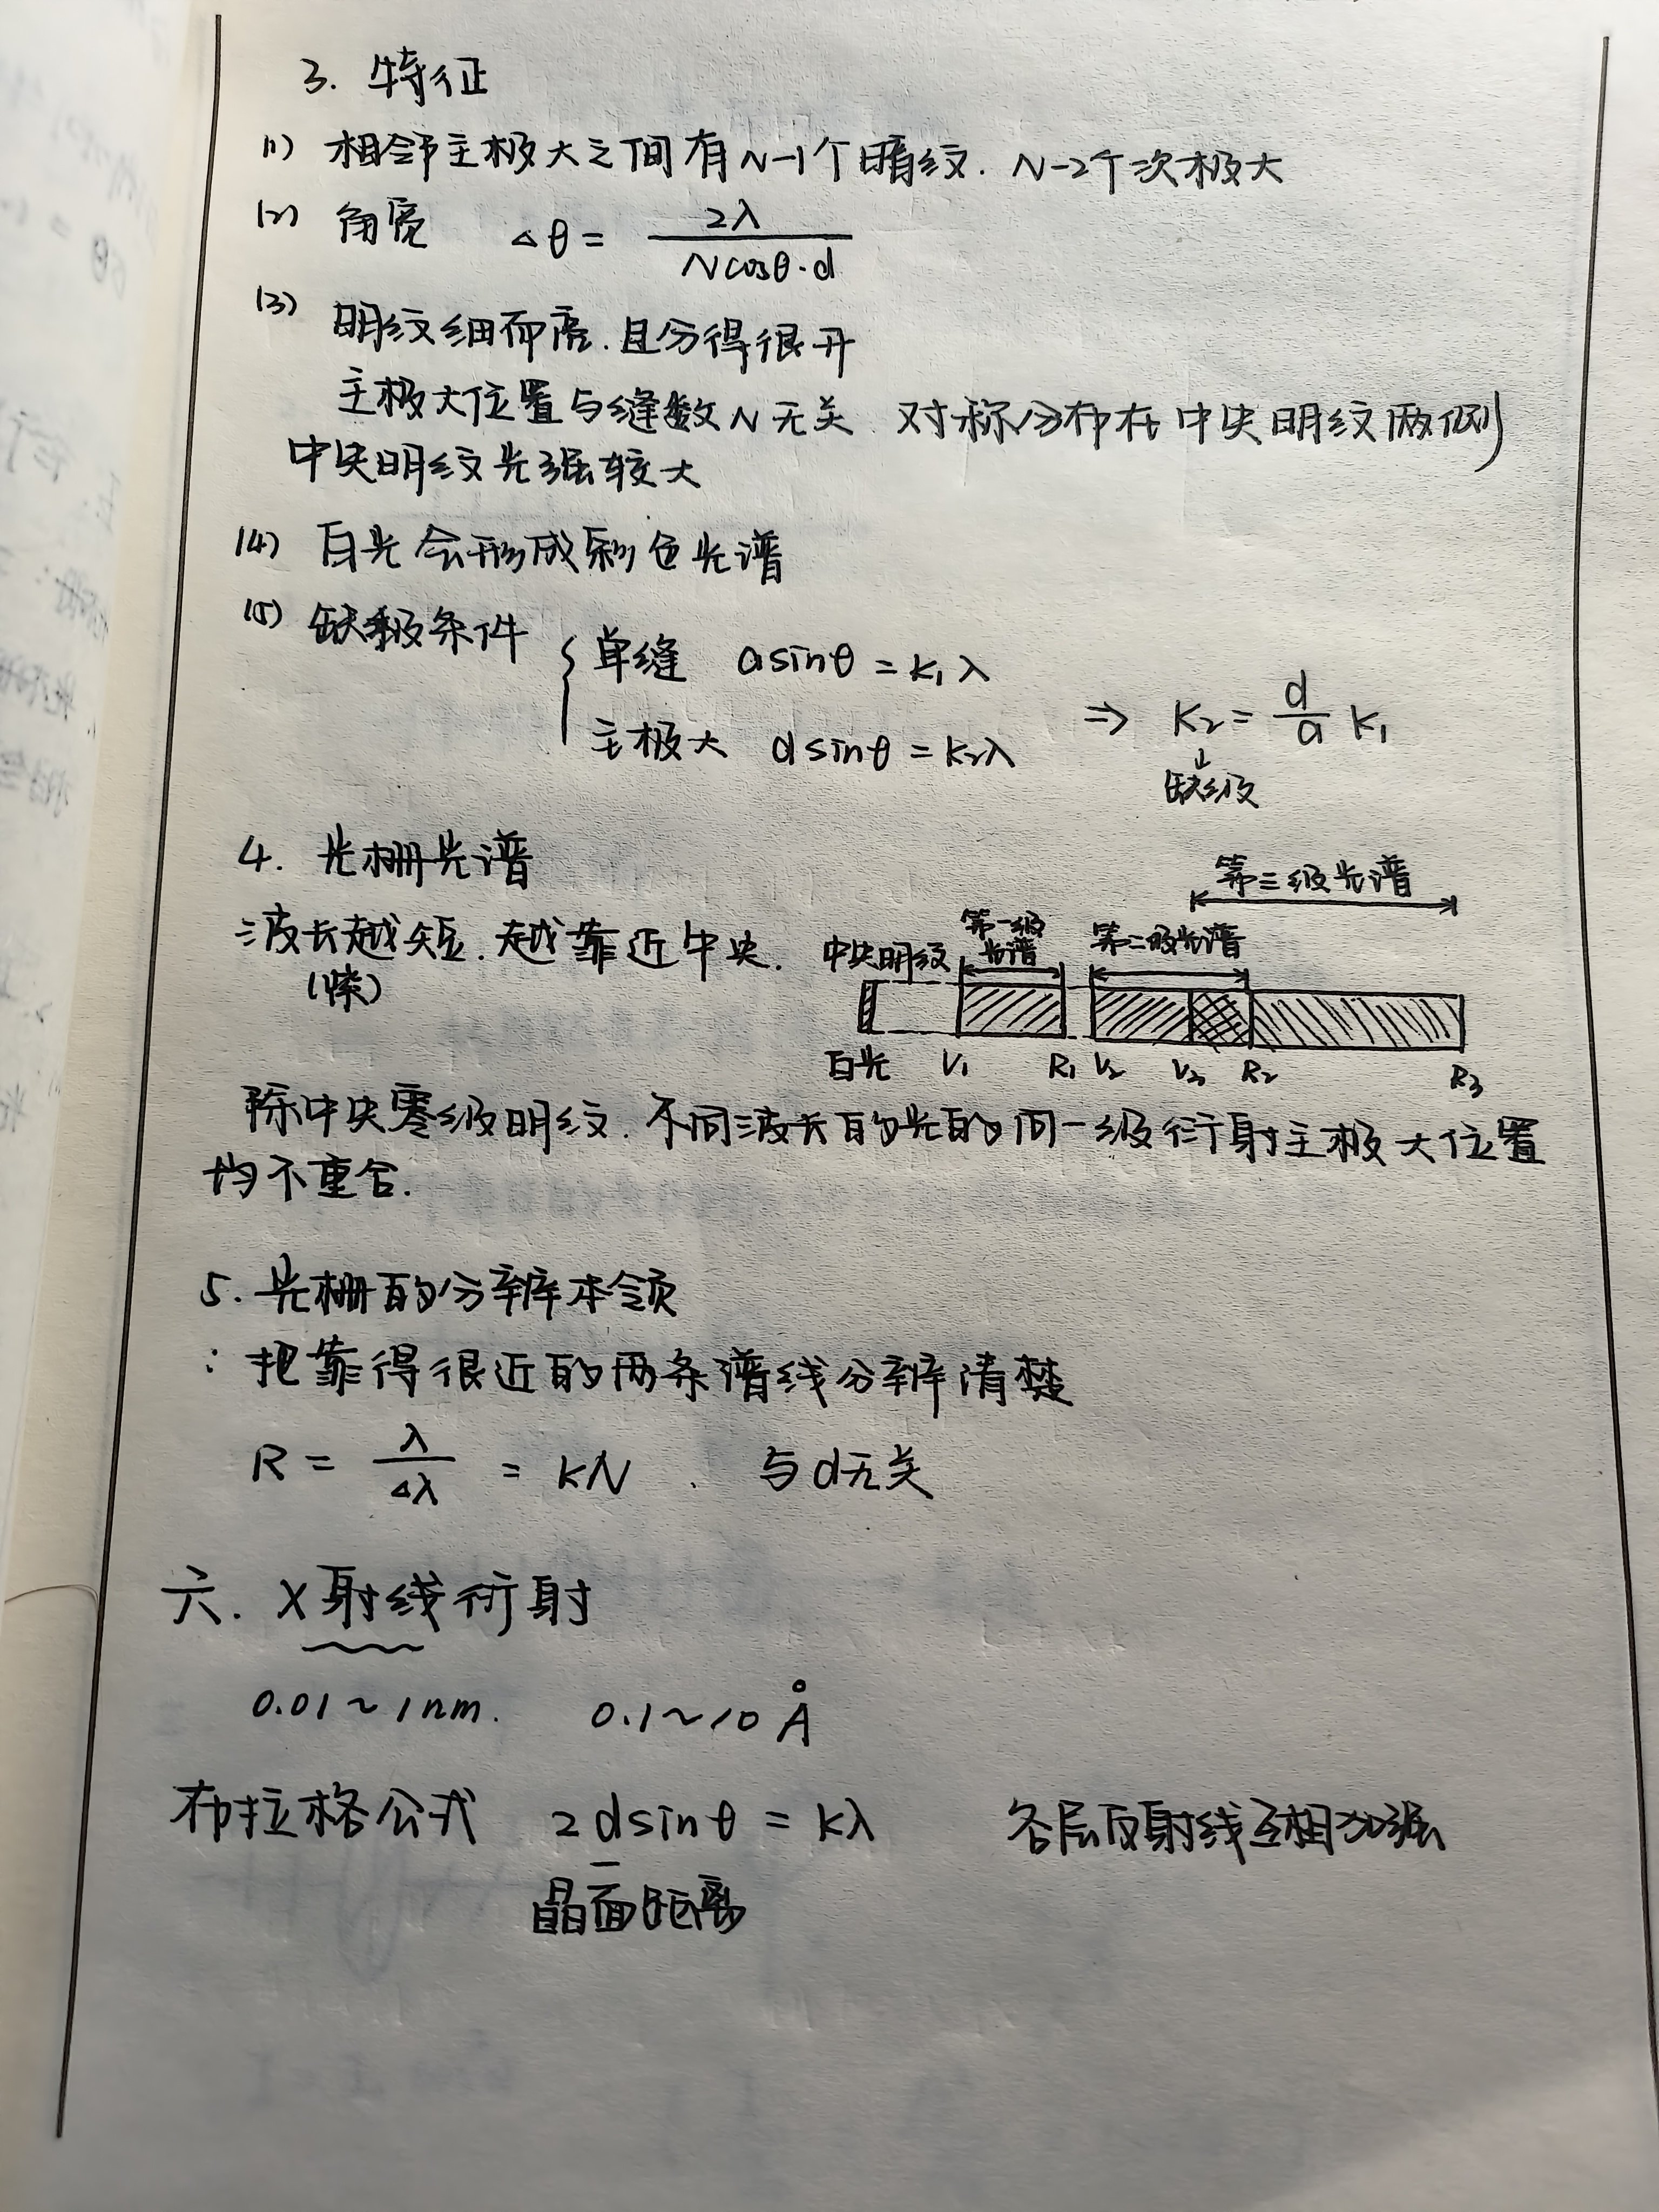 3. 特征
(1) 相邻主极大之间有N-1个暗纹. N-2个次极大
(2) 角宽 Δθ = 2λ / Ncosθ·d
(3) 明纹细而亮. 且分得很开
主极大位置与缝数N无关. 对称分布在中央明纹两侧
中央明纹光强较大
(4) 白光会形成彩色光谱
(5) 缺级条件 { 单缝 asinθ = k₁λ
主极大 dsinθ = k₂λ
⇒ K₂ = d/a K₁
↓
缺级
4. 光栅光谱
第三级光谱
波长越短. 越靠近中央.
(紫)
中央明纹 第一级光谱 第二级光谱
白光 V₁ R₁ V₂ V₃ R₂ R₃
除中央零级明纹. 不同波长的光的同一级衍射主极大位置
均不重合.
5. 光栅的分辨本领
: 把靠得很近的两条谱线分辨清楚
R = λ/Δλ = kN . 与d无关
六. X射线衍射
0.01~1nm. 0.1~10 Å
布拉格公式 2dsinθ = kλ 各层反射线互相加强
晶面距离